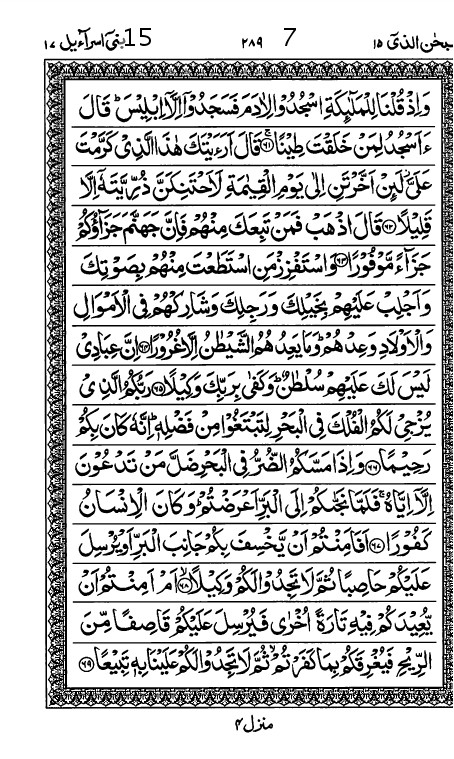 سبحٰن الذی ١٥ 7 ٢٨٩ 15 بنیٓ اسرآءیل ١٧
وَاِذْ قُلْنَا لِلْمَلٰٓئِكَةِ اسْجُدُوْا لِاٰدَمَ فَسَجَدُوْۤا اِلَّاۤ اِبْلِیْسَ ؕ قَالَ
ءَاَسْجُدُ لِمَنْ خَلَقْتَ طِیْنًا ۚ﴿٦١﴾ قَالَ اَرَءَیْتَكَ هٰذَا الَّذِیْ كَرَّمْتَ
عَلَیَّ ؗ لَئِنْ اَخَّرْتَنِ اِلٰی یَوْمِ الْقِیٰمَةِ لَاَحْتَنِكَنَّ ذُرِّیَّتَهٗۤ اِلَّا
قَلِیْلًا ﴿٦٢﴾ قَالَ اذْهَبْ فَمَنْ تَبِعَكَ مِنْهُمْ فَاِنَّ جَهَنَّمَ جَزَآؤُكُمْ
جَزَآءً مَّوْفُوْرًا ﴿٦٣﴾ وَاسْتَفْزِزْ مَنِ اسْتَطَعْتَ مِنْهُمْ بِصَوْتِكَ
وَاَجْلِبْ عَلَیْهِمْ بِخَیْلِكَ وَرَجِلِكَ وَشَارِكْهُمْ فِی الْاَمْوَالِ
وَالْاَوْلَادِ وَعِدْهُمْ ؕ وَمَا یَعِدُهُمُ الشَّیْطٰنُ اِلَّا غُرُوْرًا ﴿٦٤﴾ اِنَّ عِبَادِیْ
لَیْسَ لَكَ عَلَیْهِمْ سُلْطٰنٌ ؕ وَكَفٰی بِرَبِّكَ وَكِیْلًا ﴿٦٥﴾ رَبُّكُمُ الَّذِیْ
یُزْجِیْ لَكُمُ الْفُلْكَ فِی الْبَحْرِ لِتَبْتَغُوْا مِنْ فَضْلِهٖ ؕ اِنَّهٗ كَانَ بِكُمْ
رَحِیْمًا ﴿٦٦﴾ وَاِذَا مَسَّكُمُ الضُّرُّ فِی الْبَحْرِ ضَلَّ مَنْ تَدْعُوْنَ
اِلَّاۤ اِیَّاهُ ۚ فَلَمَّا نَجّٰىكُمْ اِلَی الْبَرِّ اَعْرَضْتُمْ ؕ وَكَانَ الْاِنْسَانُ
كَفُوْرًا ﴿٦٧﴾ اَفَاَمِنْتُمْ اَنْ یَّخْسِفَ بِكُمْ جَانِبَ الْبَرِّ اَوْ یُرْسِلَ
عَلَیْكُمْ حَاصِبًا ثُمَّ لَا تَجِدُوْا لَكُمْ وَكِیْلًا ﴿٦٨﴾ اَمْ اَمِنْتُمْ اَنْ
یُّعِیْدَكُمْ فِیْهِ تَارَةً اُخْرٰی فَیُرْسِلَ عَلَیْكُمْ قَاصِفًا مِّنَ
الرِّیْحِ فَیُغْرِقَكُمْ بِمَا كَفَرْتُمْ ۙ ثُمَّ لَا تَجِدُوْا لَكُمْ عَلَیْنَا بِهٖ تَبِیْعًا ﴿٦٩﴾
منزل ٤